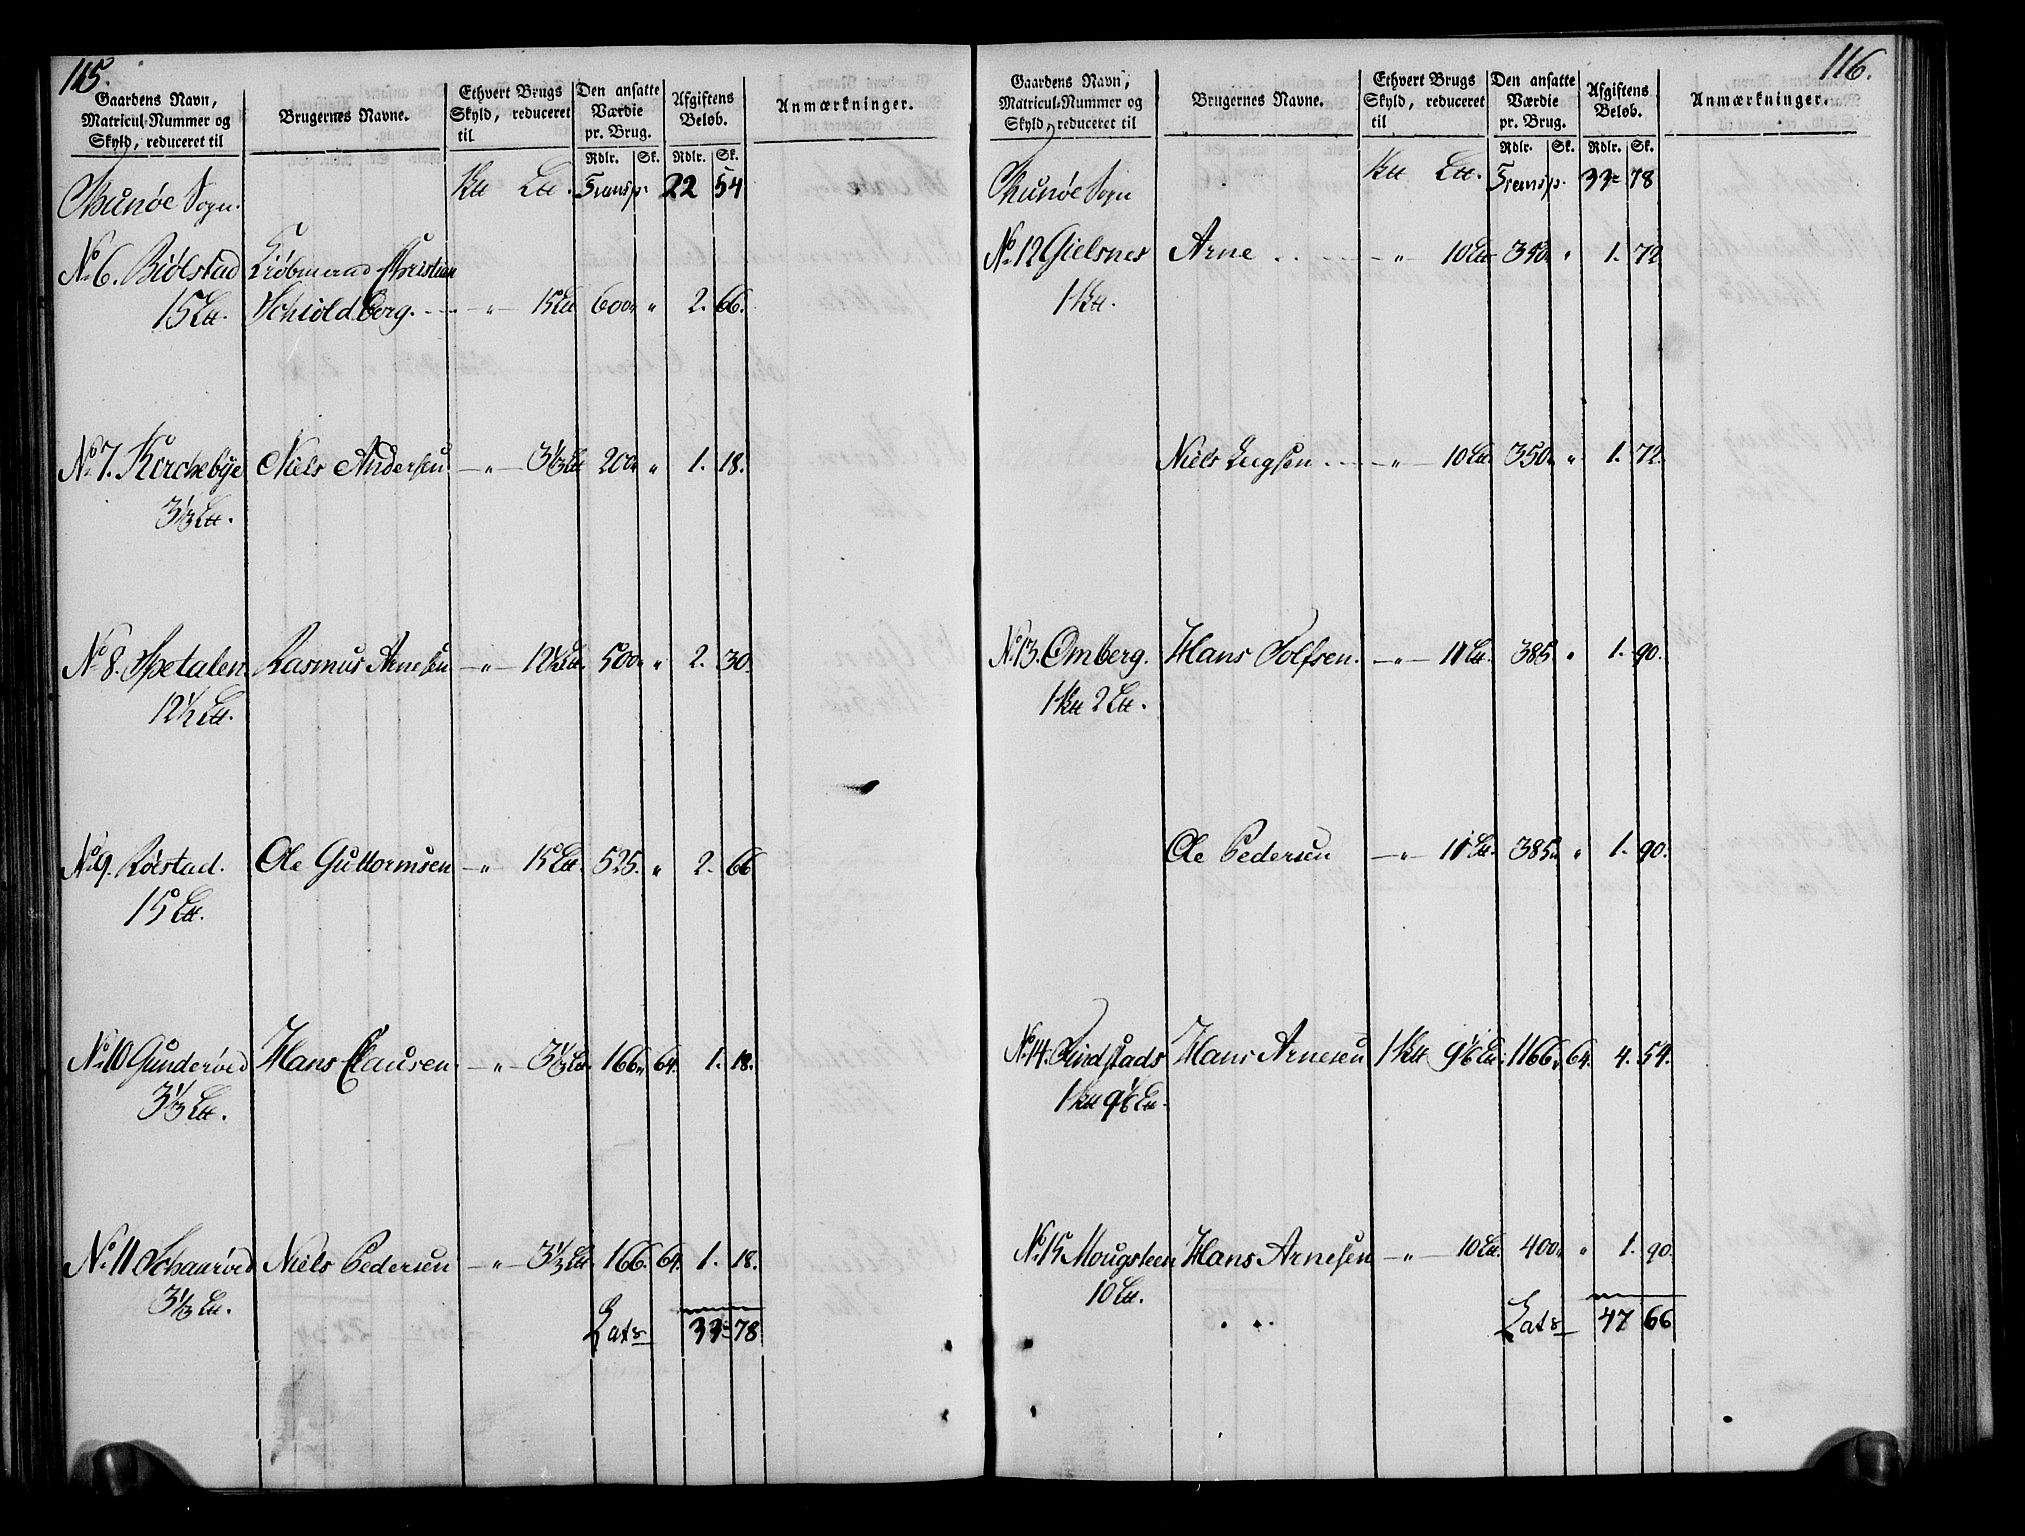 115.
Gaardens Navn, Matricul-Nummer og Skyld, reduceret til
Brugernes Navne.
Ethvert Brugs Skyld, reduceret til
Den ansatte Værdie pr. Brug.
Afgiftens Beløb.
Anmærkninger.
Rdlr. Sk. Rdlr. Sk.
Thunøe Sogn. Ktt Ltt. Transp. 22 54
No. 6. Biölstad Kiöbmand Christian
15 Ltt. Schiöldberg. - " - 15 Ltt 600 " 2. 66.
No. 7. Kirchebÿe Niels Andersen - " - 3 1/3 Ltt 200 " 1. 18.
3 1/3 Ltt.
No. 8. Spetalen Rasmus Arnesen - " - 12 1/2 Ltt. 500 " 2. 30.
12 1/2 Ltt.
No. 9. Röestad. Ole Guttormsen - " - 15 Ltt. 525. " 2. 66
15 Ltt.
No. 10 Gunderöed Hans Clausen - " - 3 1/3 Ltt. 166 64. 1. 18.
3 1/3 Ltt.
No. 11 Schaaröed Niels Pedersen - " - 3 1/3 Ltt 166. 64. 1. 18.
3 1/3 Ltt.
Lats 33 78
116.
Gaardens Navn, Matricul-Nummer og Skyld, reduceret til
Brugernes Navne.
Ethvert Brugs Skyld, reduceret til
Den ansatte Værdie pr. Brug.
Afgiftens Beløb.
Anmærkninger.
Rdlr. Sk. Rdlr. Sk.
Thunøe Sogn Ktt Ltt. Transp. 33 78
No. 12 Gielsnes Arne - " - 10 Ltt 350 " 1. 72
1 Ktt.
Niels - " - 10 Ltt. 350 " 1. 72.
No. 13. Omberg. Hans Tolfsen. - " - 11 Ltt. 385 " 1. 90.
1 Ktt 2 Ltt.
Ole Pedersen - " - 11 Ltt. 385 " 1. 90.
No. 14. Hans Arnesen 1 Ktt 9 1/6 Ltt. 1166 64. 4. 54.
1 Ktt 9 1/6 Ltt.
No. 15 Mougsteen Hans Arnesen - " - 10 Ltt. 400 " 1. 90.
10 Ltt.
Lats 47 66